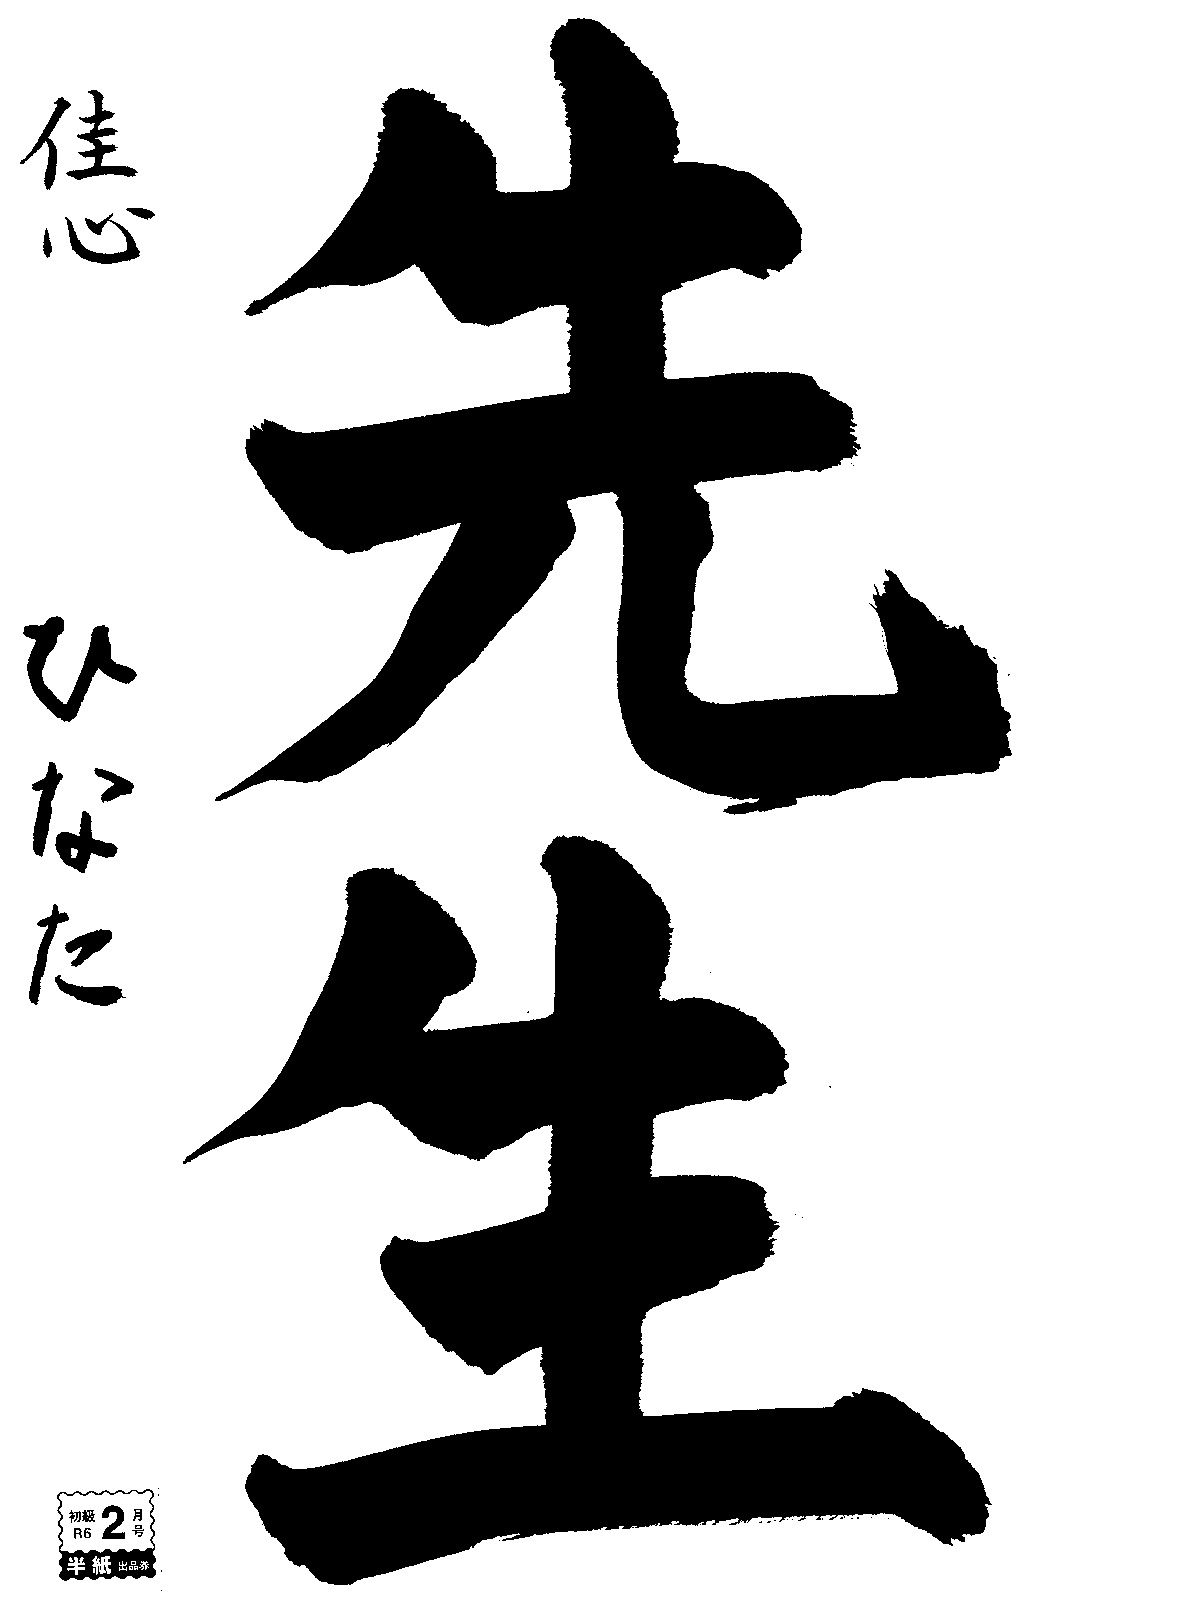 先生
佳心 ひなた
初級 2 月号
R6
半紙 出品券